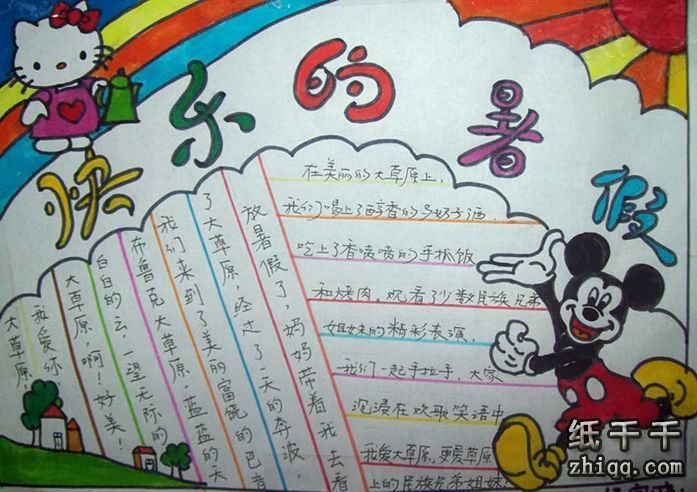 快乐的暑假
放暑假了，妈妈带着我去看
了大草原，经过了一天的奔波，
我们来到了美丽富饶的巴音
布鲁克大草原。蓝蓝的天
白白的云，一望无际的
大草原，啊！好美！
我爱你
大草原
在美丽的大草原上，
我们喝上了醇香的马奶子酒，
吃上了香喷喷的手抓饭
和烤肉，观看了少数民族兄弟
姐妹的精彩表演，
我们一起手拉手，大家
沉浸在欢歌笑语中
我爱大草原，更爱草原
上的民族兄弟姐妹
纸千千
zhiqq.com